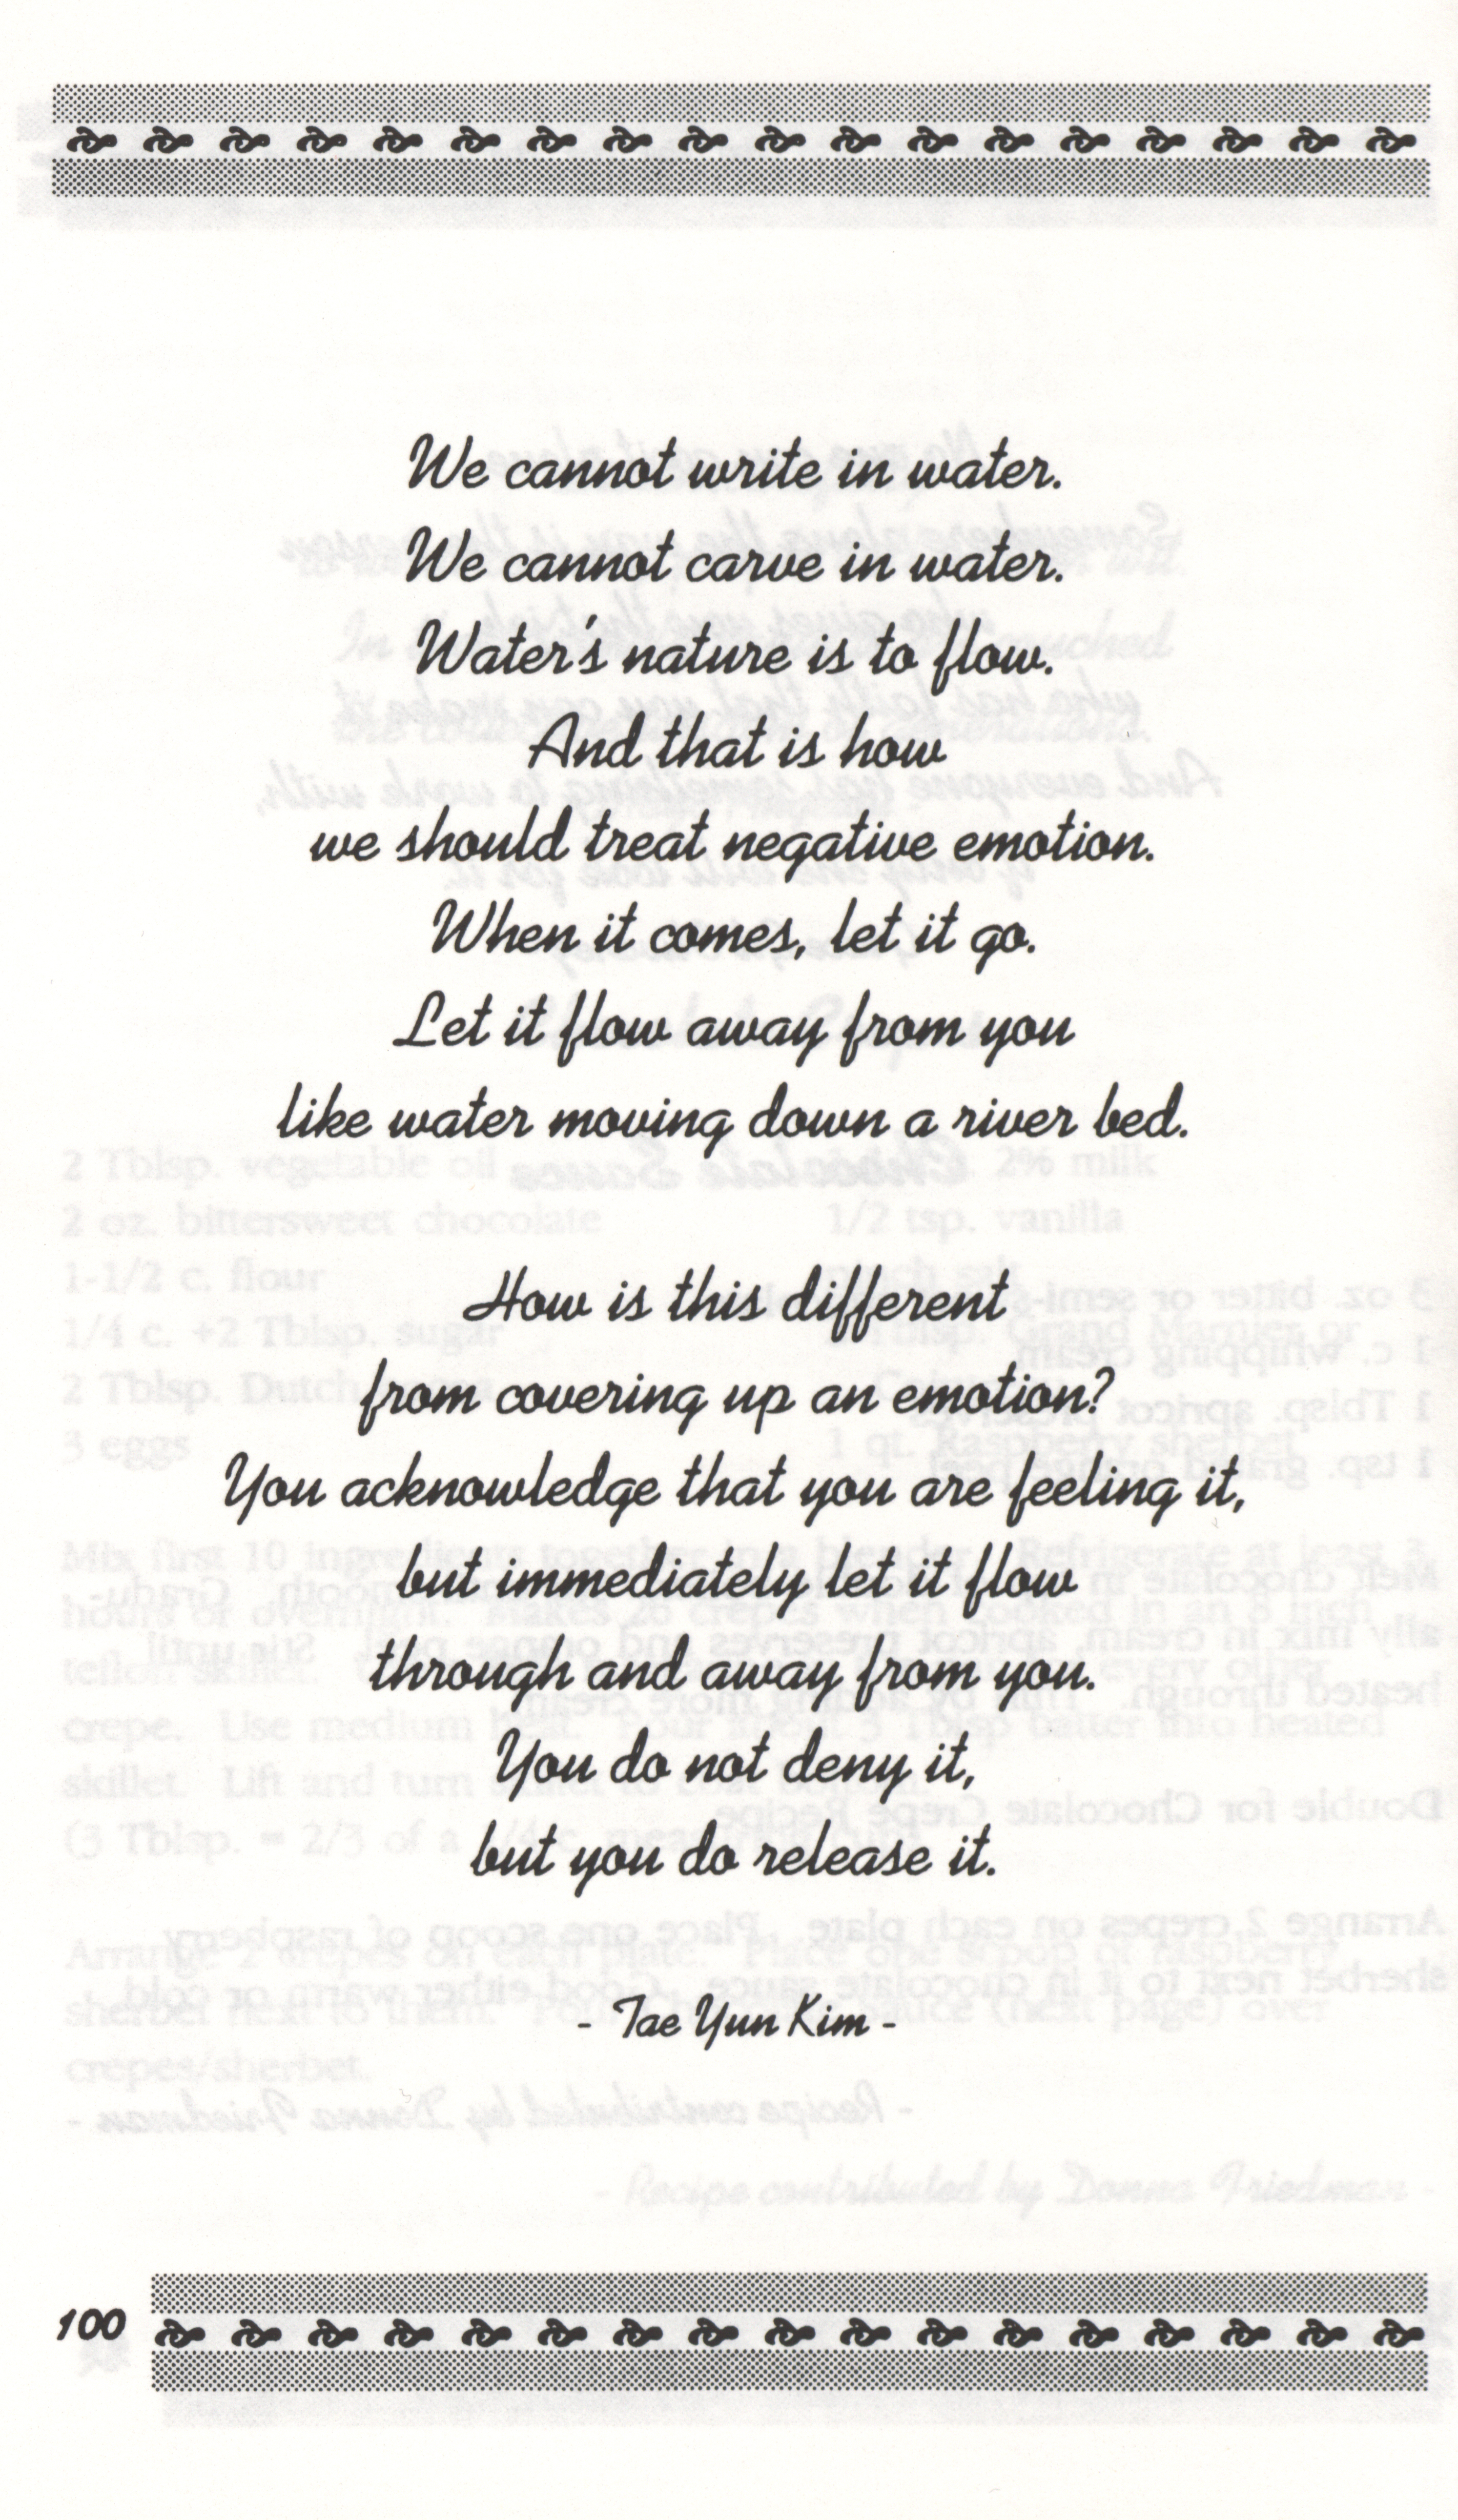 We cannot write in water.
We cannot carve in water.
Water's nature is to flow.
And that is how
we should treat negative emotion.
When it comes, let it go.
Let it flow away from you
like water moving down a river bed.
How is this different
from covering up an emotion?
You acknowledge that you are feeling it,
but immediately let it flow
through and away from you.
You do not deny it,
but you do release it.
- Tae Yun Kim -
100